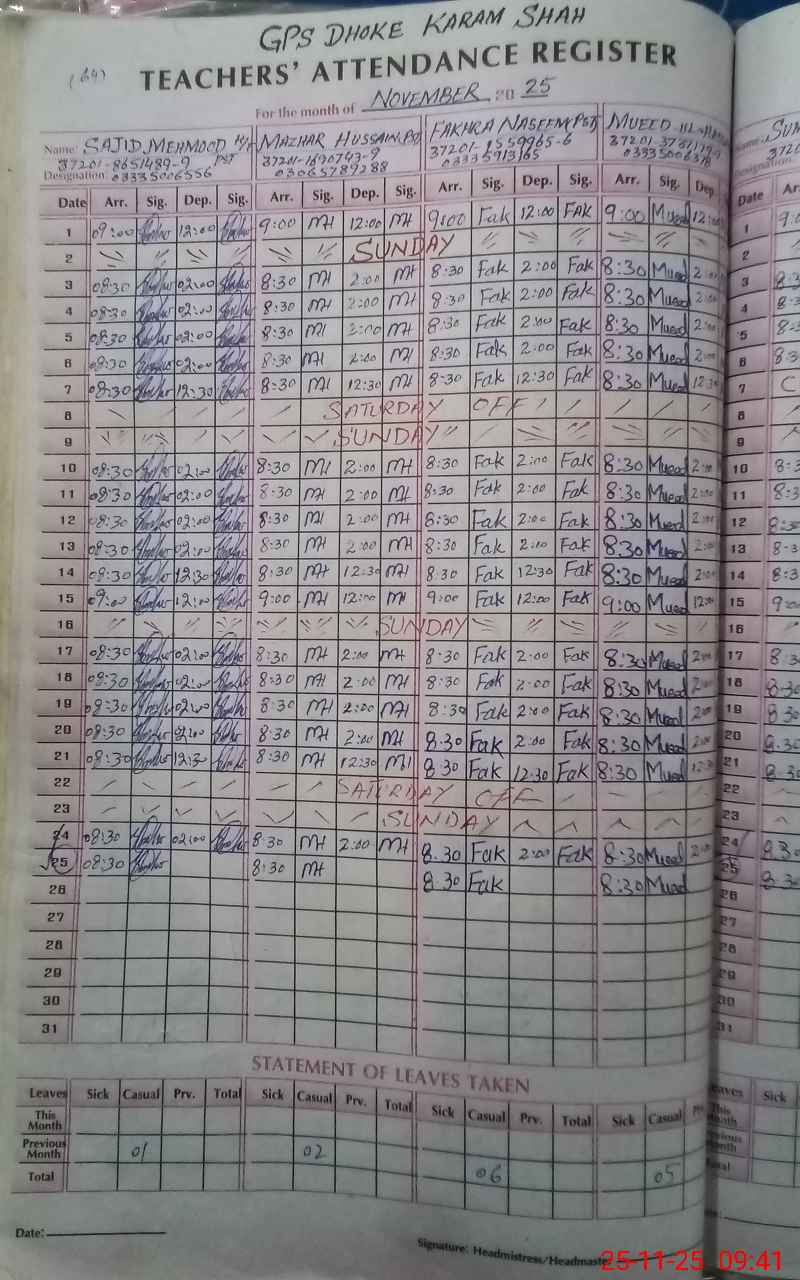 GPS DHOKE KARAM SHAH
(64)
TEACHERS' ATTENDANCE REGISTER
For the month of NOVEMBER 20 25
Name: SAJID MEHMOOD MAZHAR HUSSAIN (PST) FAKHRA NASEEM (PST) MUEED
37201-8651489-9 PST 37201-1690743-9 37201-1559965-6
Designation: 03335006556 03065789288 03335913165
Date Arr. Sig. Dep. Sig. Arr. Sig. Dep. Sig. Arr. Sig. Dep. Sig. Arr. Sig. Dep Date
1 09:00 12:00 9:00 MH 12:00 MH 9:00 Fak 12:00 FAK 9:00 Mueed 12:00 1
2 SUNDAY 2
3 08:30 02:00 8:30 MH 2:00 MH 8:30 Fak 2:00 Fak 8:30 Mueed 2:00 3
4 08:30 02:00 8:30 MH 2:00 MH 8:30 Fak 2:00 Fak 8:30 Mueed 2:00 4
5 08:30 02:00 8:30 MH 2:00 MH 8:30 Fak 2:00 Fak 8:30 Mueed 2:00 5
6 08:30 02:00 8:30 MH 2:00 MH 8:30 Fak 2:00 Fak 8:30 Mueed 2:00 6
7 08:30 12:30 8:30 MH 12:30 MH 8:30 Fak 12:30 Fak 8:30 Mueed 12:30 7
8 SATURDAY OFF 8
9 SUNDAY 9
10 08:30 02:00 8:30 MH 2:00 MH 8:30 Fak 2:00 Fak 8:30 Mueed 2:00 10
11 08:30 02:00 8:30 MH 2:00 MH 8:30 Fak 2:00 Fak 8:30 Mueed 2:00 11
12 08:30 02:00 8:30 MH 2:00 MH 8:30 Fak 2:00 Fak 8:30 Mueed 2:00 12
13 08:30 02:00 8:30 MH 2:00 MH 8:30 Fak 2:00 Fak 8.30 Mueed 2:00 13
14 08:30 12:30 8:30 MH 12:30 MH 8:30 Fak 12:30 Fak 8:30 Mueed 2:00 14
15 09:00 12:00 9:00 MH 12:00 MH 9:00 Fak 12:00 Fak 9:00 Mueed 12:00 15
16 SUNDAY 16
17 08:30 02:00 8:30 MH 2:00 MH 8:30 Fak 2:00 Fak 8:30 Mueed 2:00 17
18 08:30 02:00 8:30 MH 2:00 MH 8:30 Fak 2:00 Fak 8:30 Mueed 2:00 18
19 08:30 02:00 8:30 MH 2:00 MH 8:30 Fak 2:00 Fak 8:30 Mueed 2:00 19
20 08:30 8:30 MH 2:00 MH 8.30 Fak 2:00 Fak 8:30 Mueed 2:00 20
21 08:30 12:30 8:30 MH 12:30 MH 8.30 Fak 12.30 Fak 8:30 Mueed 12:30 21
22 SATURDAY OFF 22
23 SUNDAY 23
24 08:30 02:00 8:30 MH 2:00 MH 8.30 Fak 2:00 Fak 8:30 Mueed 2:00 24
25 08:30 8:30 MH 8.30 Fak 8:30 Mueed 25
26 26
27 27
28 28
29 29
30 30
31 31
STATEMENT OF LEAVES TAKEN
Leaves Sick Casual Prv. Total Sick Casual Prv. Total Sick Casual Prv. Total Sick Casual Sick
This Month
Previous Month 01 02
Total 06 05
Date:
Signature: Headmistress/Headmaster
25-11-25 09:41